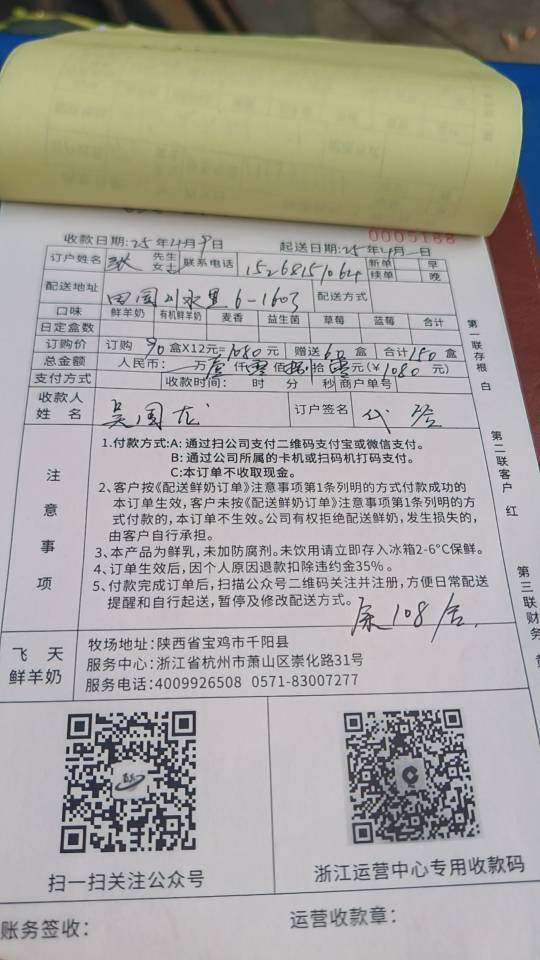 0005188
收款日期:25年4月9日 起送日期:25年4月 日
订户姓名 张 先生 女士 联系电话 15268151064 新单 续单 早 晚
配送地址 田园 6-1603 配送方式
口味 鲜羊奶 有机鲜羊奶 麦香 益生菌 草莓 蓝莓 合计
日定盒数
订购价 订购 90 盒X12元=1080 元 赠送 60 盒 合计150 盒
总金额 人民币: 万壹仟零佰捌拾零元(¥1080元)
支付方式 收款时间: 时 分 秒 商户单号
收款人姓名 吴国龙 订户签名 代
注意事项
1.付款方式:A:通过扫公司支付二维码支付宝或微信支付。
B:通过公司所属的卡机或扫码机打码支付。
C:本订单不收取现金。
2、客户按《配送鲜奶订单》注意事项第1条列明的方式付款成功的
本订单生效,客户未按《配送鲜奶订单》注意事项第1条列明的方
式付款的,本订单不生效。公司有权拒绝配送鲜奶,发生损失的,
由客户自行承担。
3、本产品为鲜乳,未加防腐剂。未饮用请立即存入冰箱2-6°C保鲜。
4、订单生效后,因个人原因退款扣除违约金35%。
5、付款完成订单后,扫描公众号二维码关注并注册,方便日常配送
提醒和自行起送,暂停及修改配送方式。
108
飞天鲜羊奶
牧场地址:陕西省宝鸡市千阳县
服务中心:浙江省杭州市萧山区崇化路31号
服务电话:4009926508 0571-83007277
扫一扫关注公众号 浙江运营中心专用收款码
账务签收: 运营收款章:
第一联存根 白
第二联客户 红
第三联财务